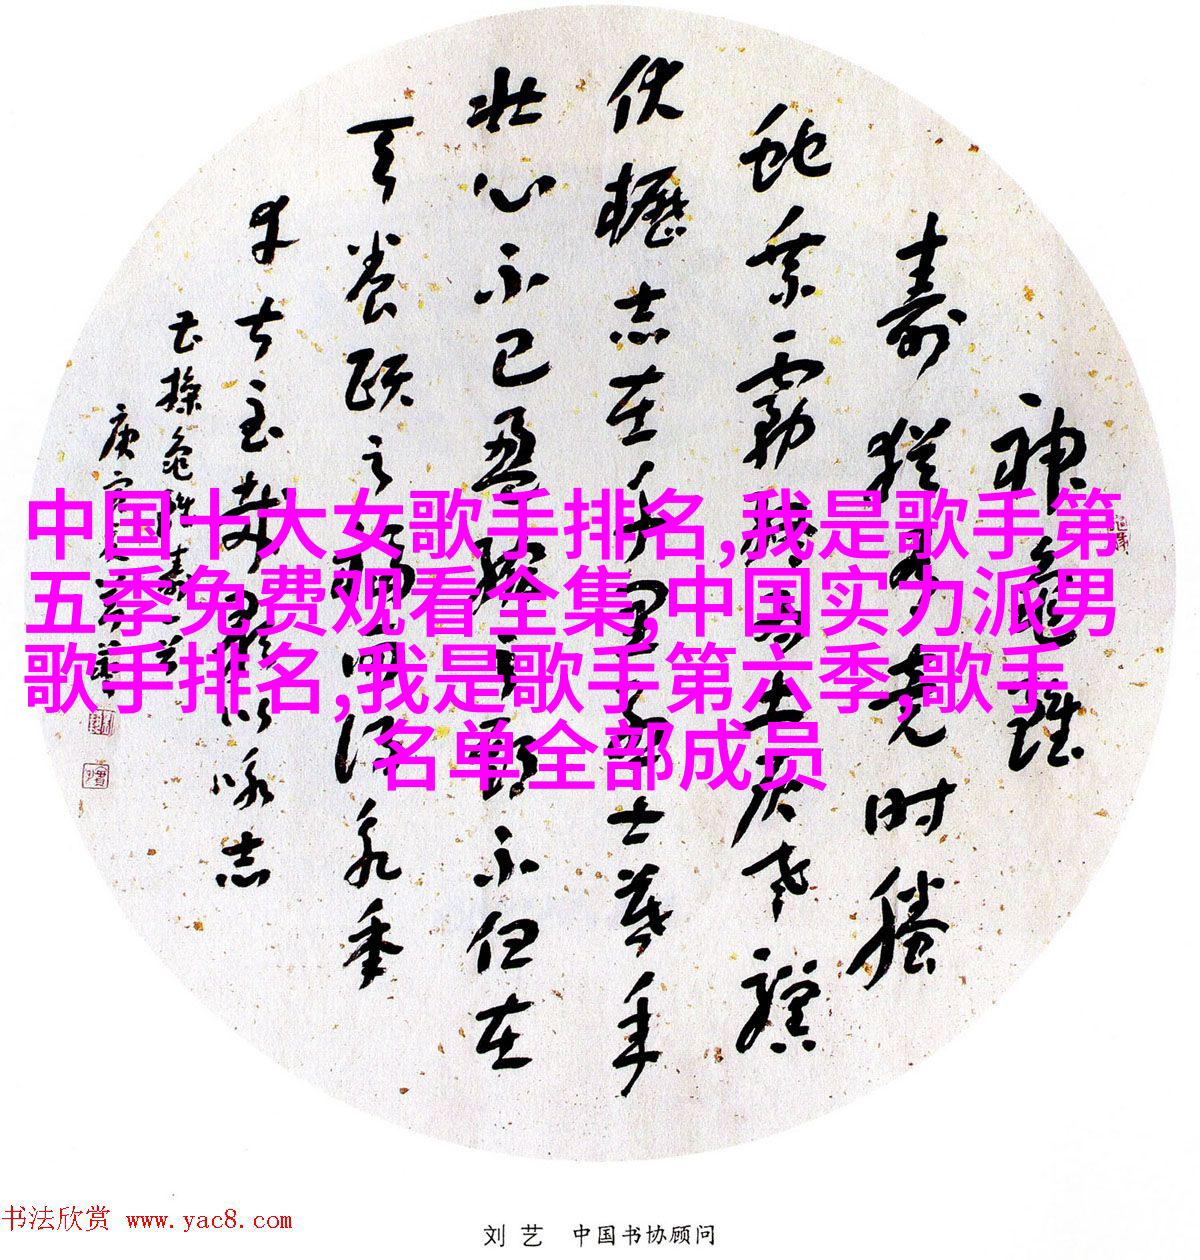 神龜雖
壽猶有竟時騰
蛇乘霧終為土灰老驥
伏櫪志在千里烈士暮年
壮心不已盈縮之期不但在
天養頤之福可得永年
幸甚至哉歌以咏志
曹操龜雖壽
庚寅
中国十大女歌手排名,我是歌手第
五季免费观看全集,中国实力派男
歌手排名,我是歌手第六季,歌手
名单全部成员
书法欣赏 www.yac8.com
刘艺 中国书协顾问